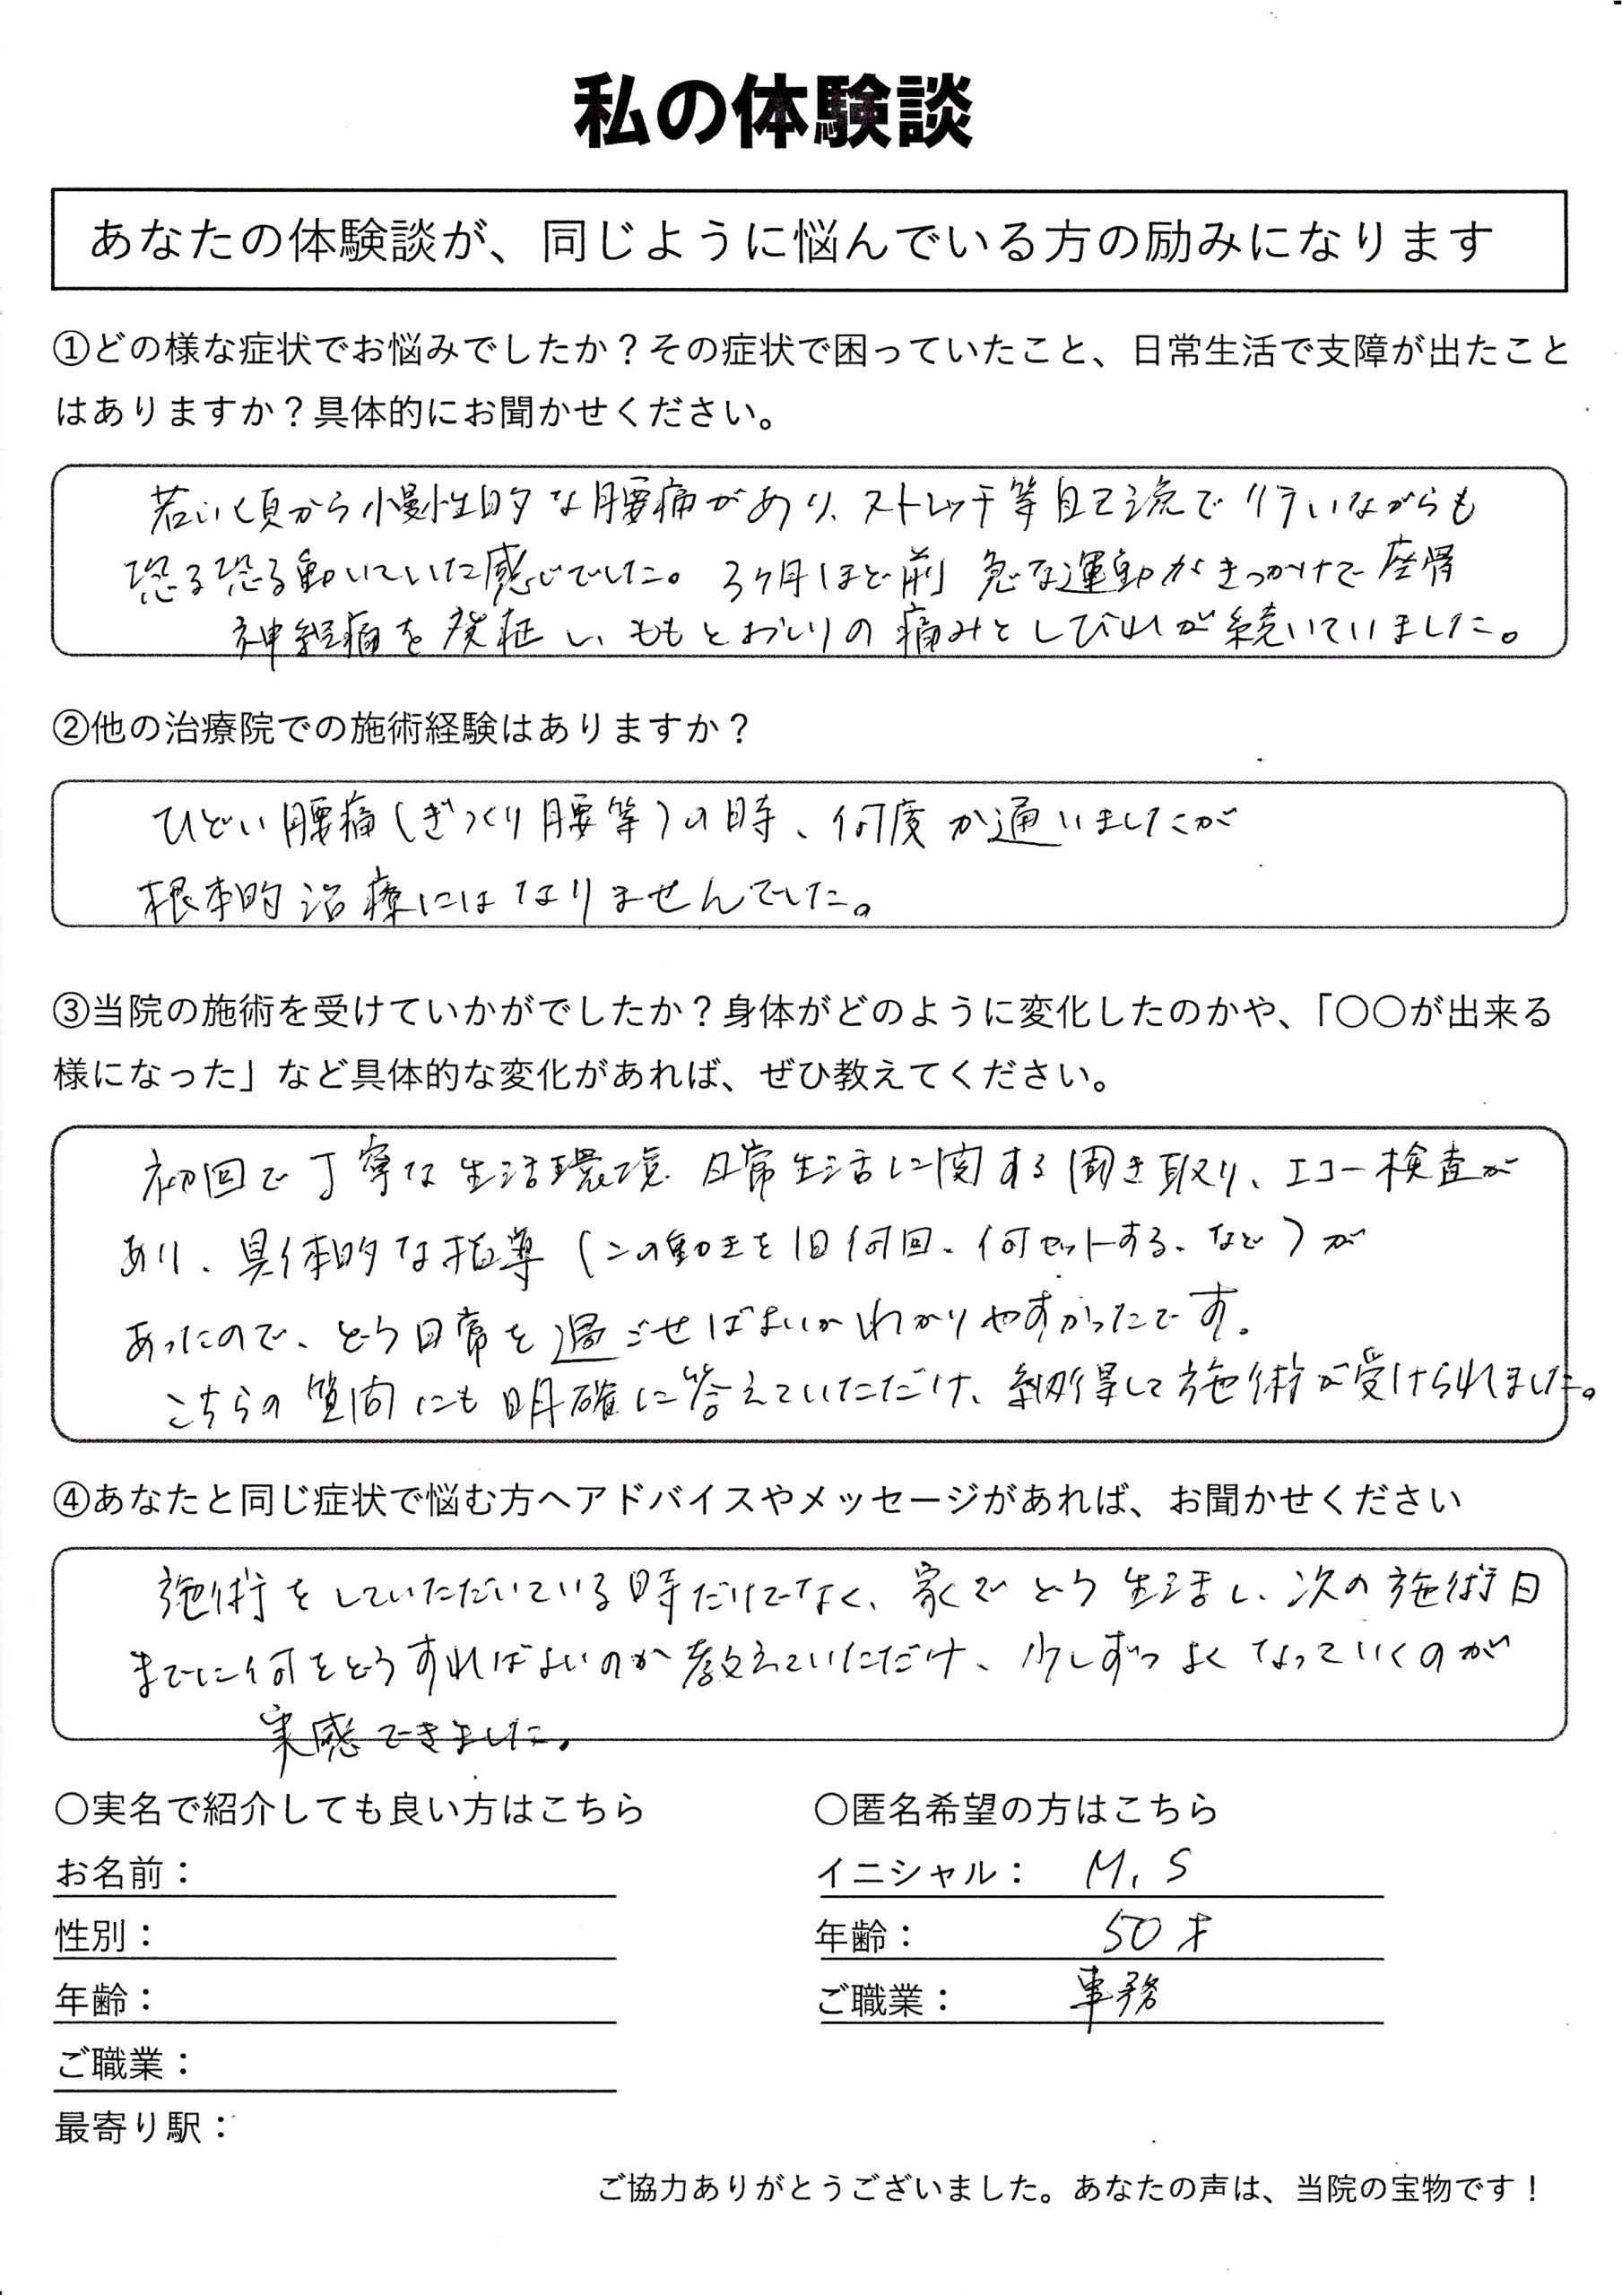 私の体験談
あなたの体験談が、同じように悩んでいる方の励みになります
①どの様な症状でお悩みでしたか？その症状で困っていたこと、日常生活で支障が出たこと
はありますか？具体的にお聞かせください。
若い頃から慢性的な腰痛があり、ストレッチ等自己流で行いながらも
恐る恐る動いていた感じでした。3ヶ月ほど前 急な運動がきっかけで座骨
神経痛を発症し、ももとおしりの痛みとしびれが続いていました。
②他の治療院での施術経験はありますか？
ひどい腰痛（ぎっくり腰等）の時、何度か通いましたが
根本的治療にはなりませんでした。
③当院の施術を受けていかがでしたか？身体がどのように変化したのかや、「〇〇が出来る
様になった」など具体的な変化があれば、ぜひ教えてください。
初回で丁寧な生活環境、日常生活に関する聞き取り、エコー検査が
あり、具体的な指導（この動きを1日何回、何セットする、など）が
あったので、どう日常を過ごせばよいかわかりやすかったです。
こちらの質問にも明確に答えていただけ、納得して施術が受けられました。
④あなたと同じ症状で悩む方へアドバイスやメッセージがあれば、お聞かせください
施術をしていただいている時だけでなく、家でどう生活し、次の施術日
までに何をどうすればよいのか教えていただけ、少しずつよくなっていくのが
実感できました。
〇実名で紹介しても良い方はこちら
お名前：
性別：
年齢：
ご職業：
最寄り駅：
〇匿名希望の方はこちら
イニシャル： M.S
年齢： 50才
ご職業： 事務
ご協力ありがとうございました。あなたの声は、当院の宝物です！